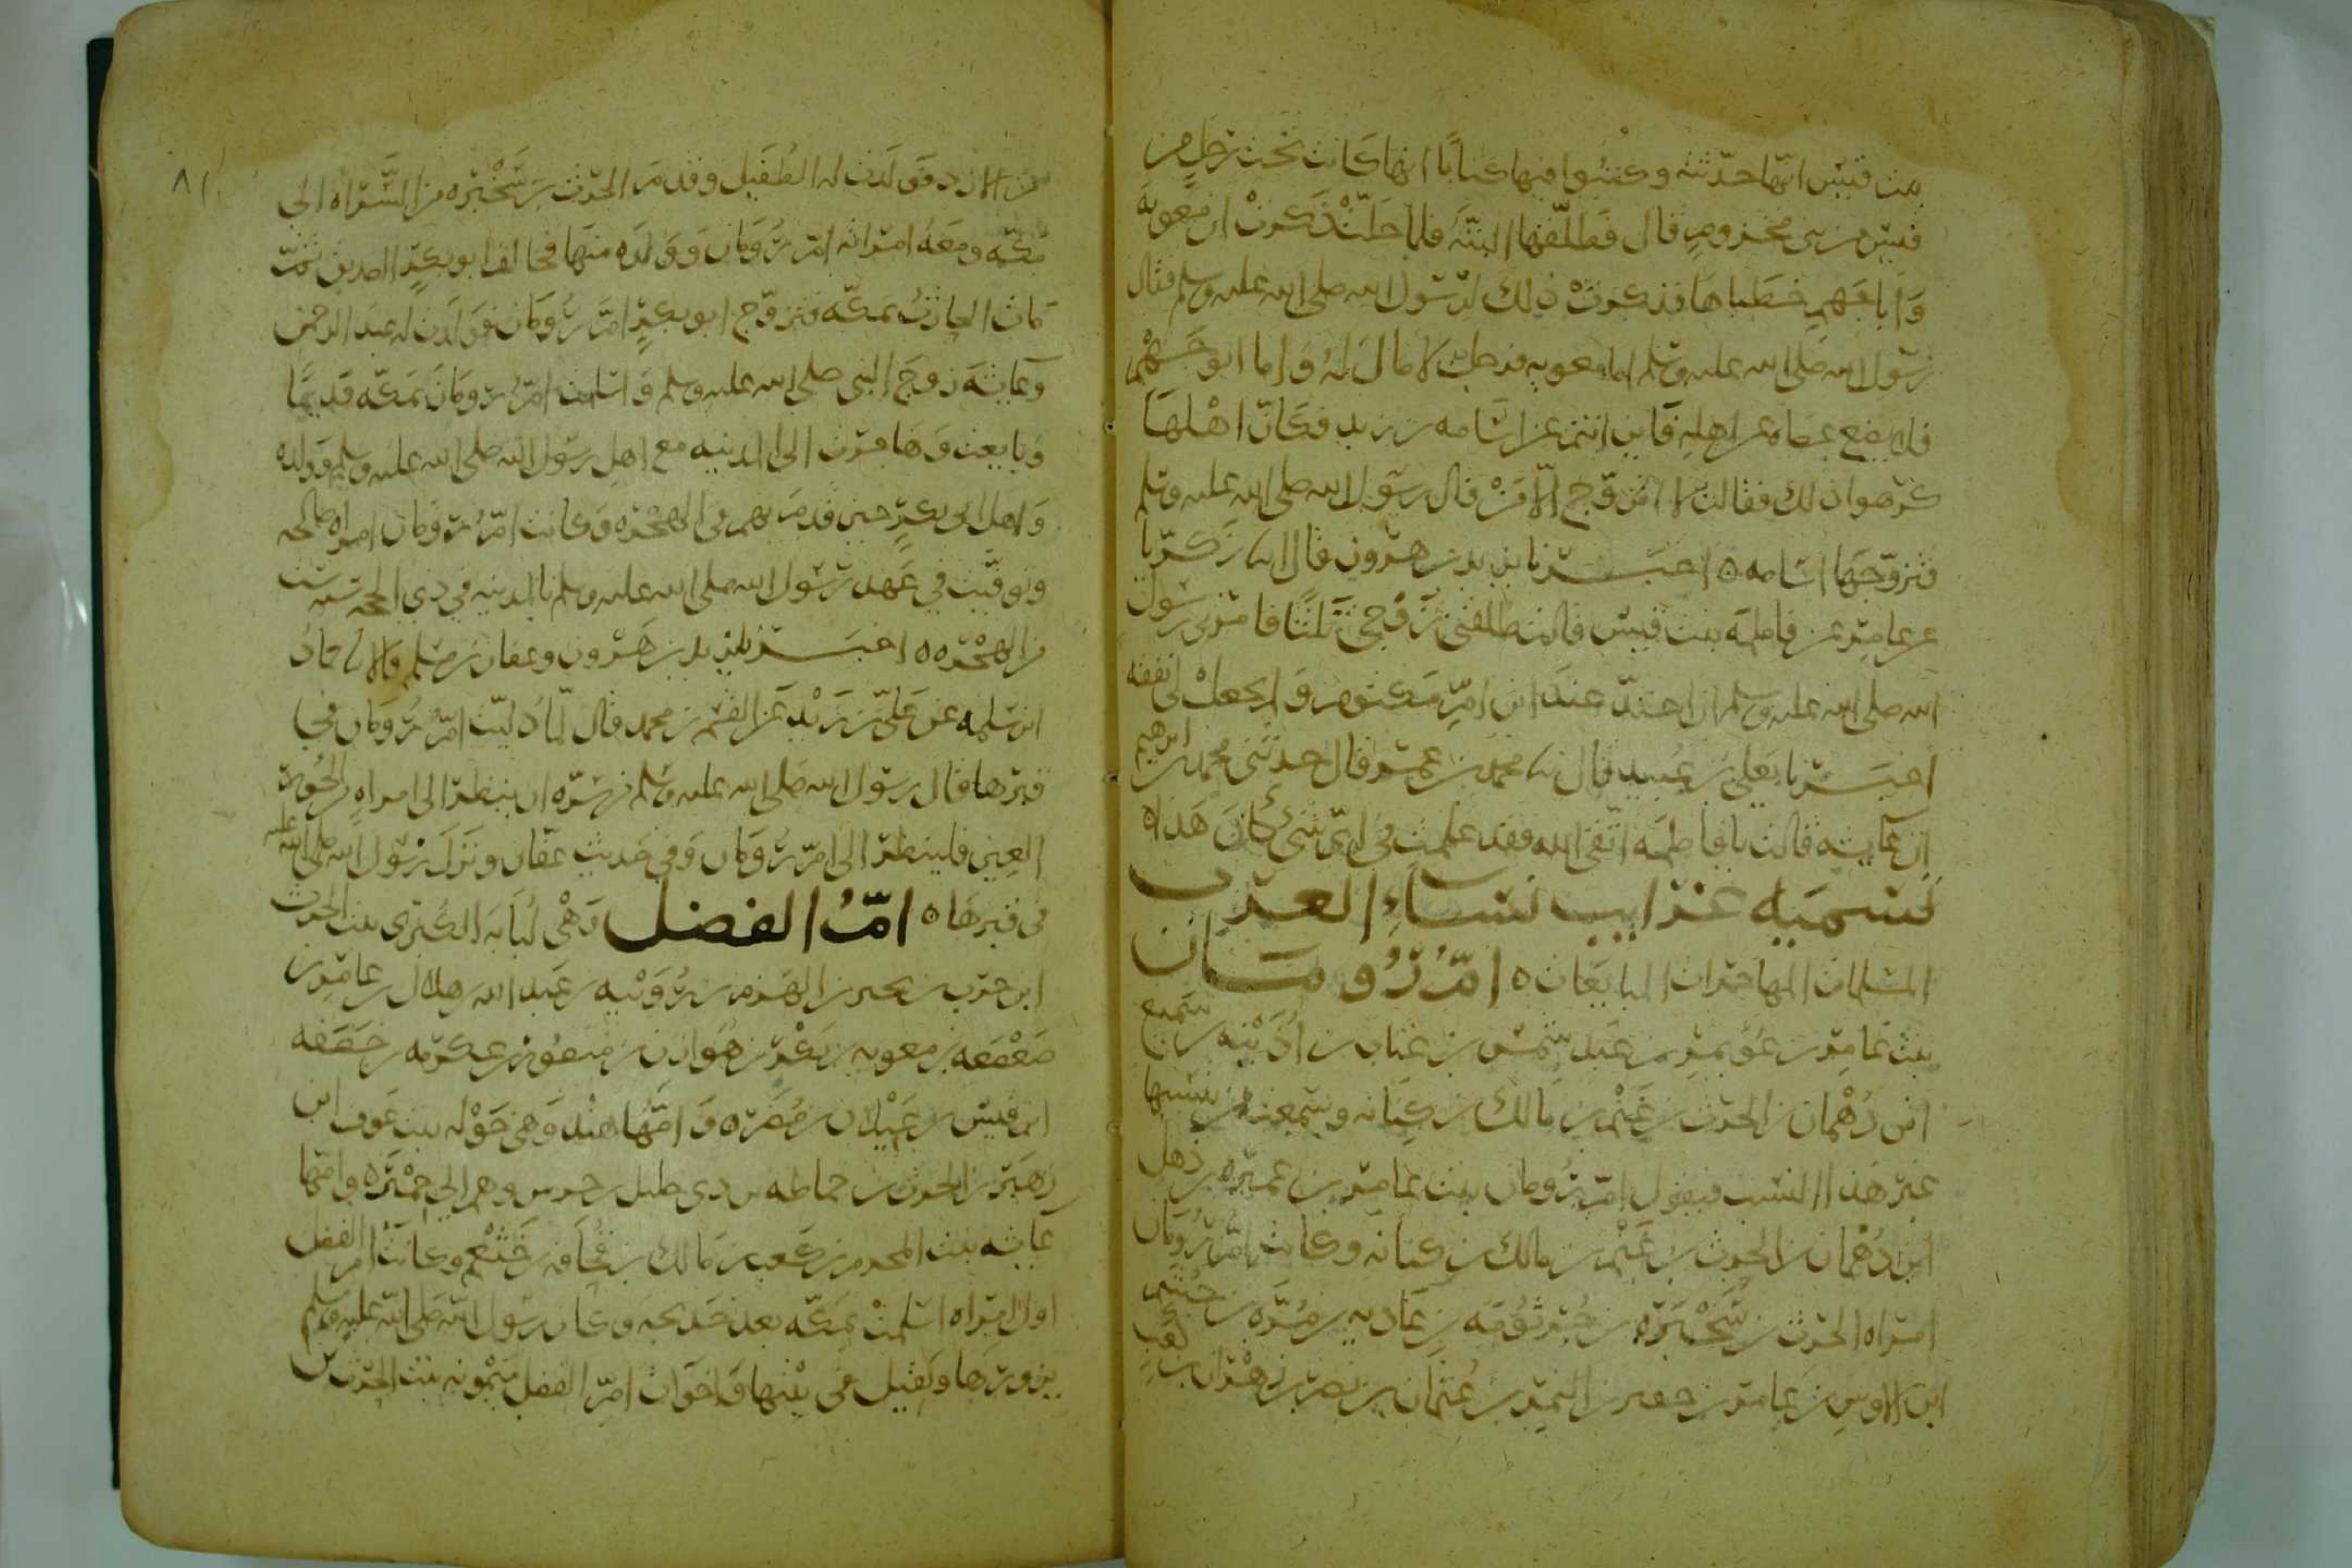 بنت قيس انها حدثته وكتبوا منها كتابا انها كانت تحت رجل من
قيس من بني مخزوم قال فطلقها البتة فلما حلت ذكرت ان معوية
وابا جهم خطباها فذكرت ذلك لرسول الله صلى الله عليه وسلم فقال
رسول الله صلى الله عليه وسلم اما معويه فرجل لا مال له واما ابو جهم
فلا يضع عصاه عن اهله فاين انتم عن اسامه بن زيد فكان اهلها
كرهوا ذلك فقالت لا اتزوج الا من قال رسول الله صلى الله عليه وسلم
فتزوجها اسامه ٥ اخبرنا يزيد بن هرون قال انا زكريا
عن عامر عن فاطمه بنت قيس قالت طلقني زوجي ثلثا فامرني رسول
الله صلى الله عليه وسلم ان اعتد عند ابن ام مكتوم ولم يجعل لي نفقه
اخبرنا يعلى بن عبيد قال نا محمد بن عمرو قال حدثني محمد بن ابرهيم
ان عايشه قالت يا فاطمه اتقي الله فقد علمت في اي شي كان هذا ٥
تسميه غرايب نساء العرب
المسلمات المهاجرات المبايعات ٥ ام رومان
بنت عامر بن عويمر بن عبد شمس بن عتاب بن اذينه بن سبيع
ابن دهمان بن الحرث بن غنم بن مالك بن كنانه وسمعت من ينسبها
غير هذا النسب فيقول ام رومان بنت عامر بن عميره بن ذهل
ابن دهمان بن الحرث بن غنم بن مالك بن كنانه وكانت ام رومان
امراه الحرث بن سخبره بن جرثومه بن عاديه بن مره بن جشم
ابن الاوس بن عامر بن حفير بن النمر بن عثمان بن نصر بن زهران بن كعب
من الازد فولدت له الطفيل وقدم الحرث بن سخبره من السراه الى
مكه ومعه امراته ام رومان وولده منها فحالف ابو بكر الصديق ثم
مات الحارث بمكه فتزوج ابو بكر ام رومان فولدت له عبد الرحمن
وعايشه زوج النبي صلى الله عليه وسلم واسلمت ام رومان بمكه قديما
وبايعت وهاجرت الى المدينه مع اهل رسول الله صلى الله عليه وسلم وولده
واهل ابي بكر حين قدم بهم في الهجره وكانت ام رومان امراه صالحه
وتوفيت في عهد رسول الله صلى الله عليه وسلم بالمدينه في ذي الحجه سنه ست
من الهجره ٥٥ اخبرنا يزيد بن هرون وعفان بن مسلم قالا نا حماد
ابن سلمه عن علي بن زيد عن القسم بن محمد قال لما دليت ام رومان في
قبرها قال رسول الله صلى الله عليه وسلم من سره ان ينظر الى امراه من الحور
العين فلينظر الى ام رومان وفي حديث عفان ونزل رسول الله صلى الله عليه
في قبرها ٥ ام الفضل وهي لبابه الكبرى بنت الحرث
ابن حرب بن بحير بن الهزم بن رويبه بن عبد الله بن هلال بن عامر بن
صعصعه بن معويه بن بكر بن هوازن بن منصور بن عكرمه بن خصفه
ابن قيس بن عيلان بن مضر ٥ وامها هند وهي خوله بنت عوف ابن
زهير بن الحرث بن حماطه بن ذي حليل بن جرس وهم الى حمير ٥ وامها
عايشه بنت المحرم بن كعب بن مالك بن قحافه بن خثعم وكانت ام الفضل
اول امراه اسلمت بمكه بعد خديجه وكان رسول الله صلى الله عليه وسلم
يزورها ويقيل في بيتها واخوات ام الفضل ميمونه بنت الحرث بن